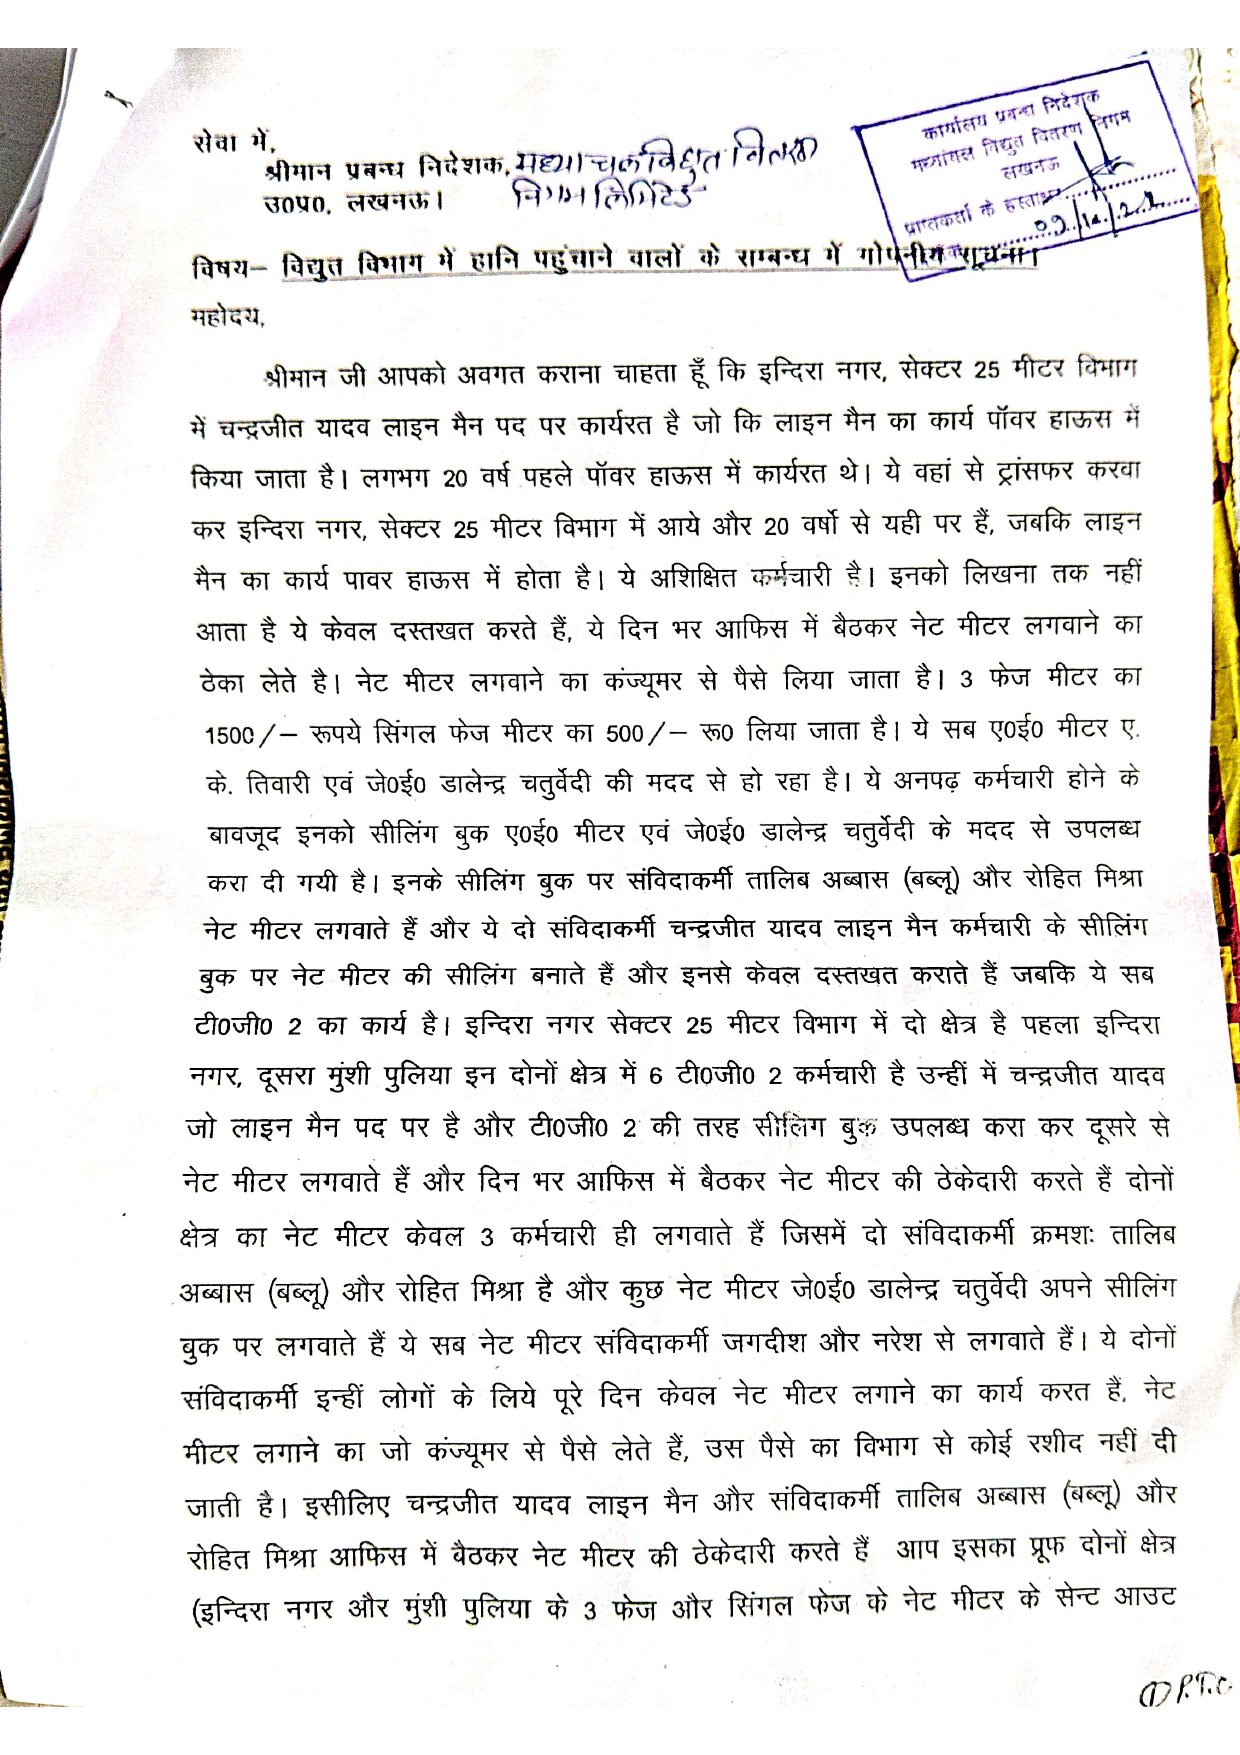 सेवा में,
श्रीमान प्रबन्ध निदेशक, मध्यांचल विद्युत वितरण
उ0प्र0, लखनऊ। निगम लिमिटेड
कार्यालय प्रबन्ध निदेशक
मध्यांचल विद्युत वितरण निगम
लखनऊ
प्राप्तकर्ता के हस्ताक्षर
विषय– विद्युत विभाग में हानि पहुंचाने वालों के सम्बन्ध में गोपनीय सूचना।
महोदय,
श्रीमान जी आपको अवगत कराना चाहता हूँ कि इन्दिरा नगर, सेक्टर 25 मीटर विभाग
में चन्द्रजीत यादव लाइन मैन पद पर कार्यरत है जो कि लाइन मैन का कार्य पॉवर हाऊस में
किया जाता है। लगभग 20 वर्ष पहले पॉवर हाऊस में कार्यरत थे। ये वहां से ट्रांसफर करवा
कर इन्दिरा नगर, सेक्टर 25 मीटर विभाग में आये और 20 वर्षो से यही पर हैं, जबकि लाइन
मैन का कार्य पावर हाऊस में होता है। ये अशिक्षित कर्मचारी है। इनको लिखना तक नहीं
आता है ये केवल दस्तखत करते हैं, ये दिन भर आफिस में बैठकर नेट मीटर लगवाने का
ठेका लेते है। नेट मीटर लगवाने का कंज्यूमर से पैसे लिया जाता है। 3 फेज मीटर का
1500/– रूपये सिंगल फेज मीटर का 500/– रू0 लिया जाता है। ये सब ए0ई0 मीटर ए.
के. तिवारी एवं जे0ई0 डालेन्द्र चतुर्वेदी की मदद से हो रहा है। ये अनपढ़ कर्मचारी होने के
बावजूद इनको सीलिंग बुक ए0ई0 मीटर एवं जे0ई0 डालेन्द्र चतुर्वेदी के मदद से उपलब्ध
करा दी गयी है। इनके सीलिंग बुक पर संविदाकर्मी तालिब अब्बास (बब्लू) और रोहित मिश्रा
नेट मीटर लगवाते हैं और ये दो संविदाकर्मी चन्द्रजीत यादव लाइन मैन कर्मचारी के सीलिंग
बुक पर नेट मीटर की सीलिंग बनाते हैं और इनसे केवल दस्तखत कराते हैं जबकि ये सब
टी0जी0 2 का कार्य है। इन्दिरा नगर सेक्टर 25 मीटर विभाग में दो क्षेत्र है पहला इन्दिरा
नगर, दूसरा मुंशी पुलिया इन दोनों क्षेत्र में 6 टी0जी0 2 कर्मचारी है उन्हीं में चन्द्रजीत यादव
जो लाइन मैन पद पर है और टी0जी0 2 की तरह सीलिग बुक उपलब्ध करा कर दूसरे से
नेट मीटर लगवाते हैं और दिन भर आफिस में बैठकर नेट मीटर की ठेकेदारी करते हैं दोनों
क्षेत्र का नेट मीटर केवल 3 कर्मचारी ही लगवाते हैं जिसमें दो संविदाकर्मी क्रमशः तालिब
अब्बास (बब्लू) और रोहित मिश्रा है और कुछ नेट मीटर जे0ई0 डालेन्द्र चतुर्वेदी अपने सीलिंग
बुक पर लगवाते हैं ये सब नेट मीटर संविदाकर्मी जगदीश और नरेश से लगवाते हैं। ये दोनों
संविदाकर्मी इन्हीं लोगों के लिये पूरे दिन केवल नेट मीटर लगाने का कार्य करत हैं, नेट
मीटर लगाने का जो कंज्यूमर से पैसे लेते हैं, उस पैसे का विभाग से कोई रशीद नहीं दी
जाती है। इसीलिए चन्द्रजीत यादव लाइन मैन और संविदाकर्मी तालिब अब्बास (बब्लू) और
रोहित मिश्रा आफिस में बैठकर नेट मीटर की ठेकेदारी करते हैं आप इसका प्रूफ दोनों क्षेत्र
(इन्दिरा नगर और मुंशी पुलिया के 3 फेज और सिंगल फेज के नेट मीटर के सेन्ट आउट
(1) P.T.O